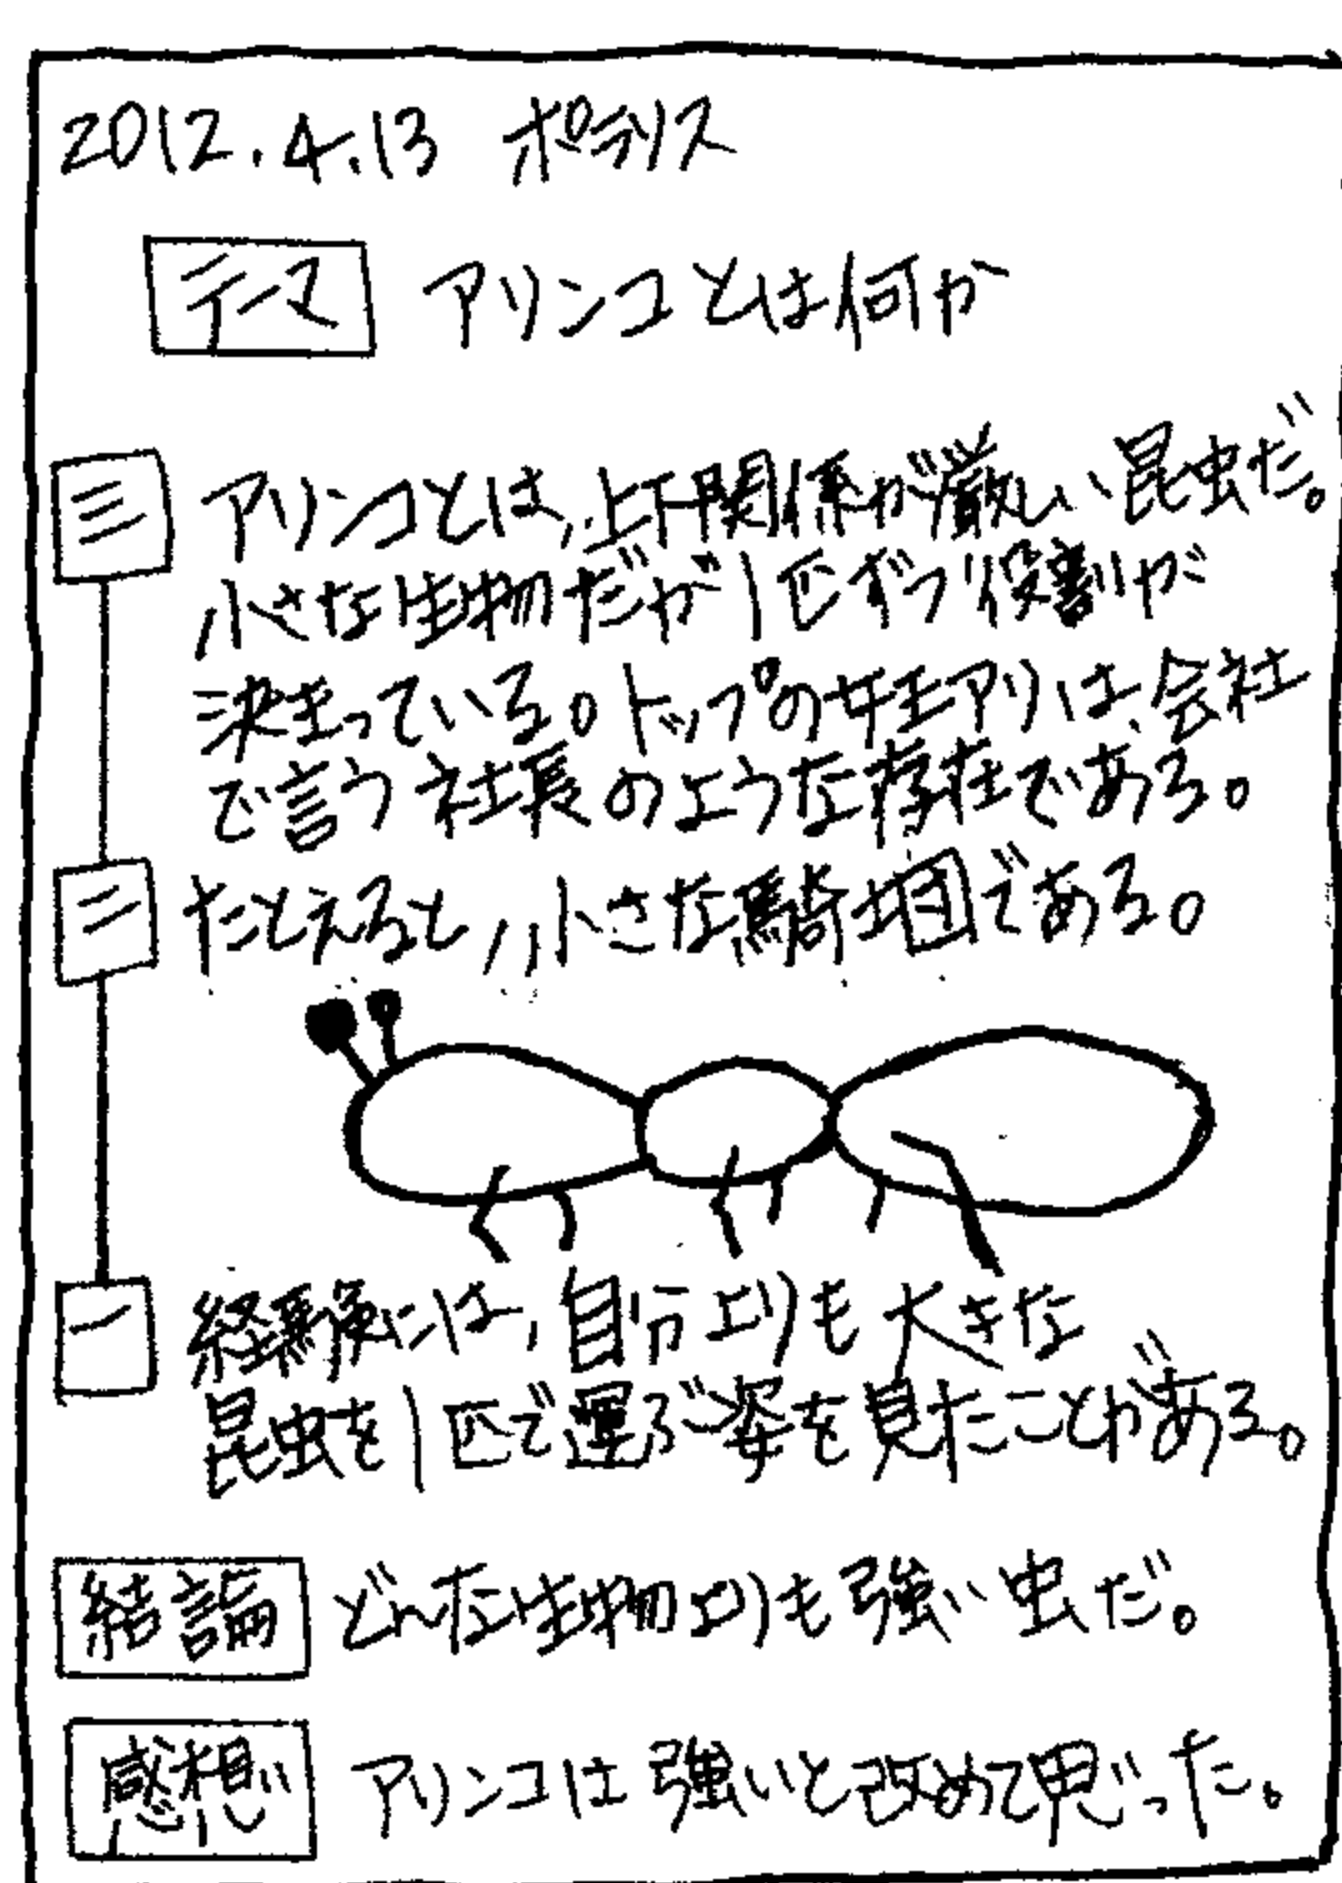 2012.4.13 ポテリス
テーマ アリンコとは何か
三 アリンコとは、上下関係が厳しい昆虫だ。
小さな生物だが1匹ずつ役割が
決まっている。トップの女王アリは、会社
で言う社長のような存在である。
二 たとえると、小さな騎士団である。
一 経験には、自分よりも大きな
昆虫を1匹で運ぶ姿を見たことがある。
結論 どんな生物よりも強い虫だ。
感想 アリンコは強いと改めて思った。